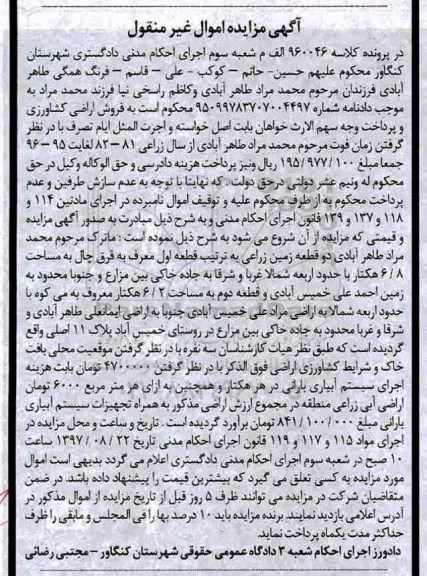 آگهی مزایده اموال غیر منقول
در پرونده کلاسه ۹۶۰۰۴۶ الف م شعبه سوم اجرای احکام مدنی دادگستری شهرستان
کنگاور محکوم علیهم حسین- حاتم – کوکب - علی – قاسم – فرنگ همگی طاهر
آبادی فرزندان مرحوم محمد مراد طاهر آبادی وکاظم راسخی نیا فرزند محمد مراد به
موجب دادنامه شماره ۹۵۰۹۹۷۸۳۷۰۷۰۰۴۴۹۷ محکوم است به فروش اراضی کشاورزی
و پرداخت وجه سهم الارث خواهان بابت اصل خواسته و اجرت المثل ایام تصرف با در نظر
گرفتن زمان فوت مرحوم محمد مراد طاهر آبادی از سال زراعی ۸۱ – ۸۲ لغایت ۹۵ – ۹۶
جمعا مبلغ ۱۹۵/۹۷۷/۱۰۰ ریال ونیز پرداخت هزینه دادرسی و حق الوکاله وکیل در حق
محکوم له ونیم عشر دولتی درحق دولت . که نهایتا با توجه به عدم سازش طرفین و عدم
پرداخت محکوم به از طرف محکوم علیه و توقیف اموال نامبرده در اجرای مادتین ۱۱۴ و
۱۱۸ و ۱۳۷ و ۱۳۹ قانون اجرای احکام مدنی و به شرح ذیل مبادرت به صدور آگهی مزایده
و قیمتی که مزایده از آن شروع می شود به شرح ذیل نموده است : ماترک مرحوم محمد
مراد طاهر آبادی دو قطعه زمین زراعی به ترتیب قطعه اول معرف به قرق چال به مساحت
۶/۸ هکتار با حدود اربعه شمالا غربا و شرقا به جاده خاکی بین مزارع و جنوبا محدود به
زمین احمد علی خمیس آبادی و قطعه دوم به مساحت ۶/۲ هکتار معروف به می کوه با
حدود اربعه شمالا به اراضی مراد علی خمیس آبادی جنوبا به اراضی ایمانعلی طاهر آبادی و
شرقا و غربا محدود به جاده خاکی بین مزارع در روستای خمیس آباد پلاک ۱۱ اصلی واقع
گردیده است که طبق نظر هیات کارشناسان سه نفره با در نظر گرفتن موقعیت محلی بافت
خاک و شرایط کشاورزی اراضی فوق الذکر با در نظر گرفتن ۴۷۰۰۰۰۰ تومان بابت هزینه
اجرای سیستم آبیاری بارانی در هر هکتار و همچنین به ازای هر متر مربع ۶۰۰۰ تومان
اراضی آبی زراعی منطقه در مجموع ارزش اراضی مذکور به همراه تجهیزات سیستم آبیاری
بارانی مبلغ ۸۴۱/۱۰۰/۰۰۰ تومان برآورد گردیده است . تاریخ و ساعت و محل مزایده در
اجرای مواد ۱۱۵ و ۱۱۷ و ۱۱۹ قانون اجرای احکام مدنی تاریخ ۲۲ / ۰۸ / ۱۳۹۷ ساعت
۱۰ صبح در شعبه سوم اجرای احکام مدنی دادگستری اعلام می گردد بدیهی است اموال
مورد مزایده به کسی تعلق می گیرد که بیشترین قیمت را پیشنهاد داده باشد. در ضمن
متقاضیان شرکت در مزایده می توانند ظرف ۵ روز قبل از تاریخ مزایده از اموال مذکور در
آدرس اعلامی بازدید نمایند. برنده مزایده باید ۱۰ درصد بها را فی المجلس و مابقی را ظرف
حداکثر مدت یکماه پرداخت نماید.
دادورز اجرای احکام شعبه ۳ دادگاه عمومی حقوقی شهرستان کنگاور – مجتبی رضائی